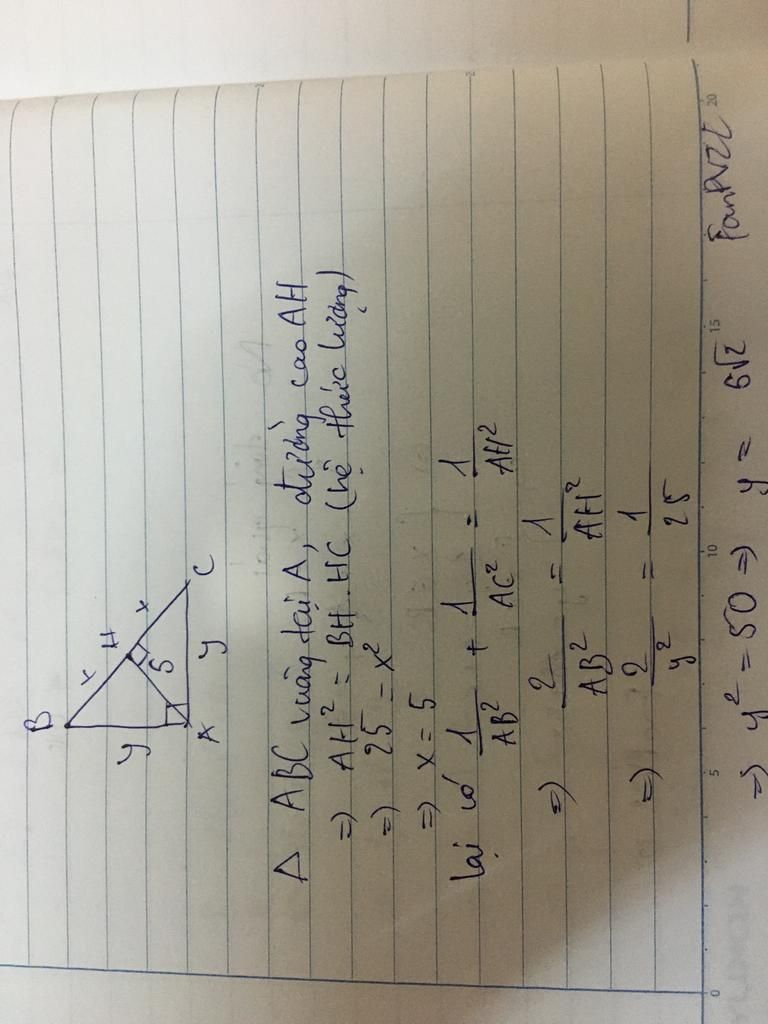 B
x
H
y
5
x
A
y
C
Δ ABC vuông tại A, đường cao AH
=) AH² = BH.HC (hệ thức lượng)
=) 25 = x²
=) x = 5
lại có 1/AB² + 1/AC² = 1/AH²
=) 2/AB² = 1/AH²
=) 2/y² = 1/25
=) y² = 50 =) y = 5√2
0 5 10 15 20